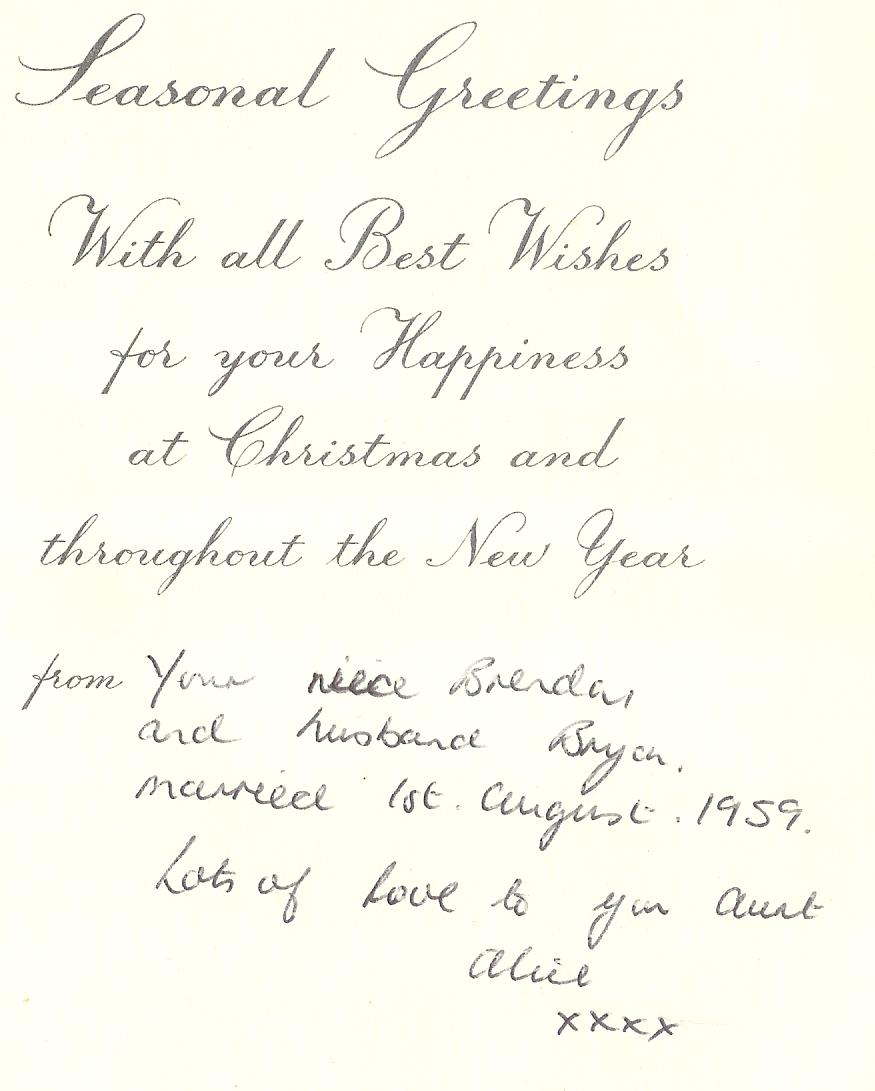 Seasonal Greetings
With all Best Wishes
for your Happiness
at Christmas and
throughout the New Year
from Your niece Brenda,
and husband Bryan.
married 1st. August. 1959.
Lots of Love to you Aunt
Alice
xxxx